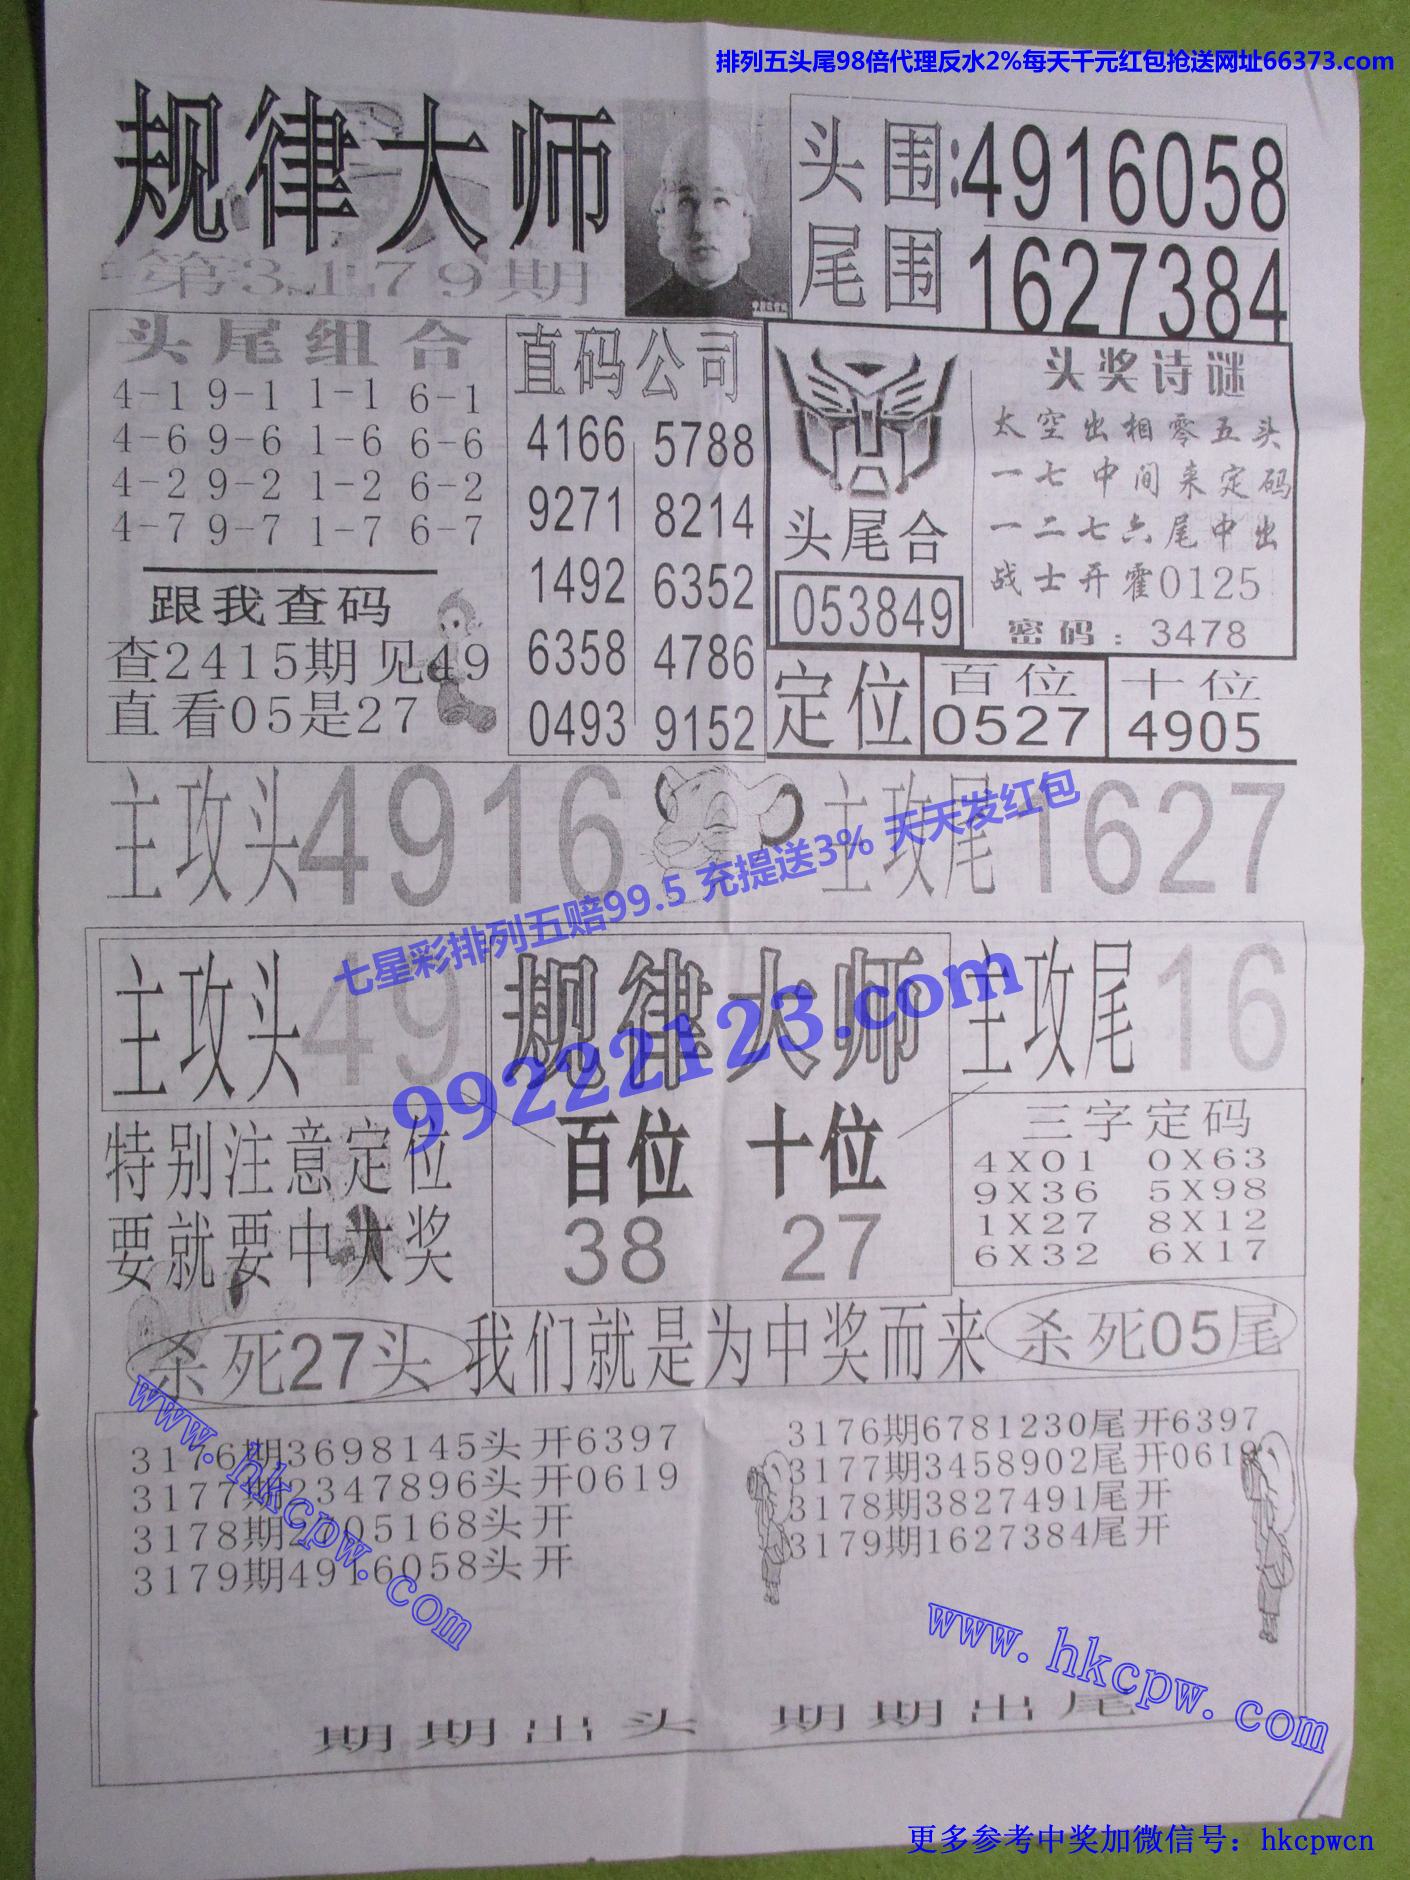 排列五头尾98倍代理反水2%每天千元红包抢送网址66373.com
规律大师
第3179期
头围:4916058
尾围1627384
头尾组合
4-1 9-1 1-1 6-1
4-6 9-6 1-6 6-6
4-2 9-2 1-2 6-2
4-7 9-7 1-7 6-7
跟我查码
查2415期见49
直看05是27
直码公司
4166 5788
9271 8214
1492 6352
6358 4786
0493 9152
头尾合
053849
头奖诗谜
太空出相零五头
一七中间来定码
一二七六尾中出
战士开霍0125
密码:3478
定位 百位 十位
0527 4905
主攻头4916 主攻尾1627
七星彩排列五赔99.5 充提送3% 天天发红包
99222123.com
主攻头49 规律大师 主攻尾16
特别注意定位
要就要中大奖
百位 十位
38 27
三字定码
4X01 0X63
9X36 5X98
1X27 8X12
6X32 6X17
杀死27头 我们就是为中奖而来 杀死05尾
3176期3698145头开6397
3177期2347896头开0619
3178期2705168头开
3179期4916058头开
3176期6781230尾开6397
3177期3458902尾开0619
3178期3827491尾开
3179期1627384尾开
www.hkcpw.com
www.hkcpw.com
期期出头 期期出尾
更多参考中奖加微信号：hkcpwcn